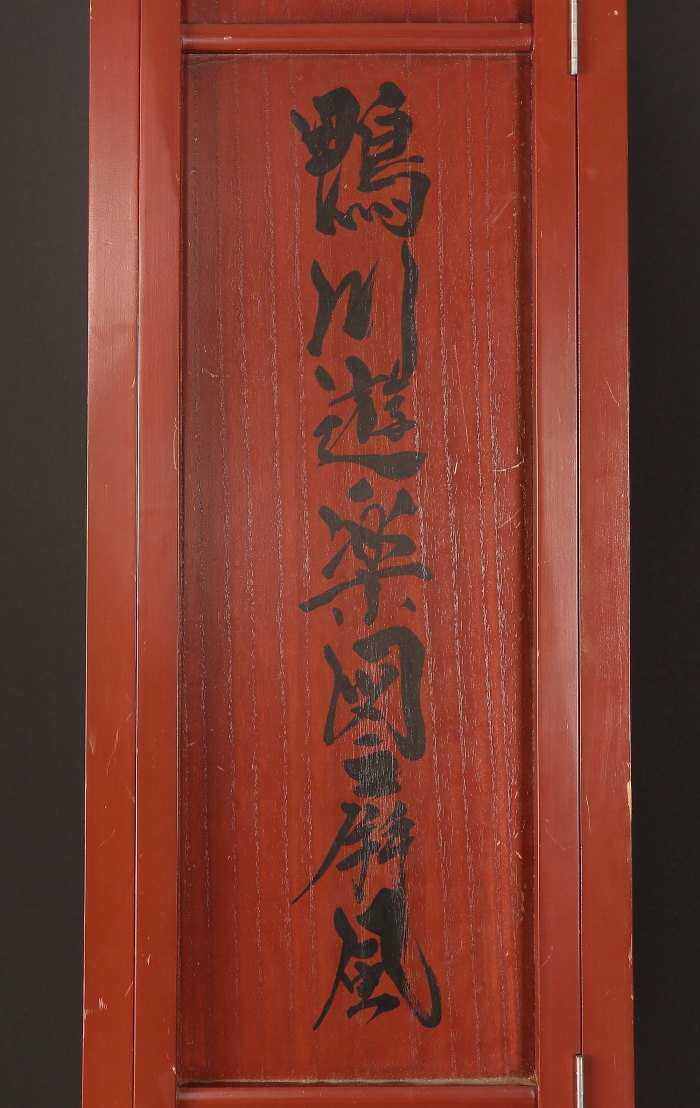 鴨川遊楽図二屏風